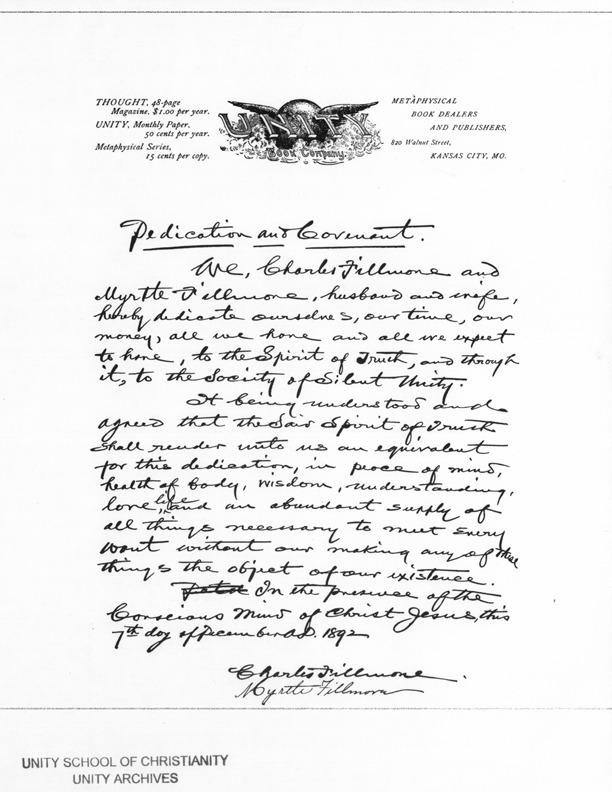 THOUGHT, 48-page
Magazine, $1.00 per year.
UNITY, Monthly Paper.
50 cents per year.
Metaphysical Series,
15 cents per copy.
UNITY
Book Company.
METAPHYSICAL
BOOK DEALERS
AND PUBLISHERS,
820 Walnut Street,
KANSAS CITY, MO.
Dedication and Covenant.
We, Charles Fillmore and
Myrtle Fillmore, husband and wife,
hereby dedicate ourselves, our time, our
money, all we have and all we expect
to have, to the Spirit of Truth, and through
it, to the Society of Silent Unity.
It being understood and
agreed that the Said Spirit of Truth
shall render unto us an equivalent
for this dedication, in peace of mind,
health of body, wisdom, understanding,
love, life and an abundant supply of
all things necessary to meet every
want without our making any of these
things the object of our existence.
In the presence of the
Conscious Mind of Christ Jesus, this
7th day of December A.D. 1892
Charles Fillmore.
Myrtle Fillmore
UNITY SCHOOL OF CHRISTIANITY
UNITY ARCHIVES